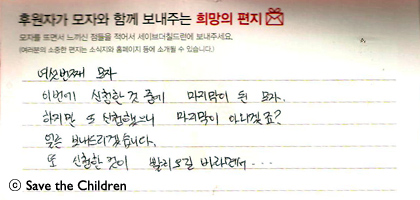 후원자가 모자와 함께 보내주는 희망의 편지
모자를 뜨면서 느끼신 점들을 적어서 세이브더칠드런에 보내주세요.
(여러분의 소중한 편지는 소식지와 홈페이지 등에 소개될 수 있습니다.)
여섯번째 모자
이번에 신청한 것 중에 마지막이 된 모자.
하지만 또 신청했으니 마지막이 아니겠죠?
얼른 보내드리겠습니다.
또 신청한 것이 빨리오길 바라면서...
ⓒ Save the Children